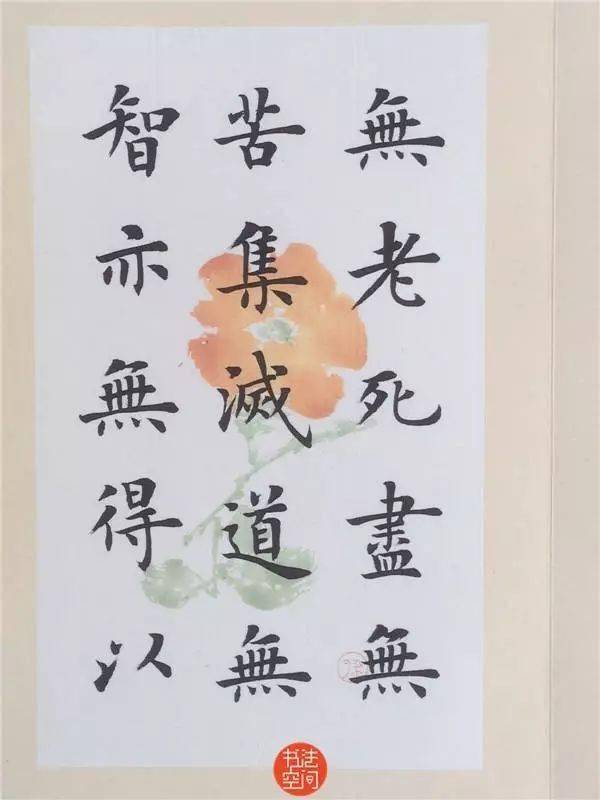 無老死盡無
苦集滅道無
智亦無得以
书法
空间